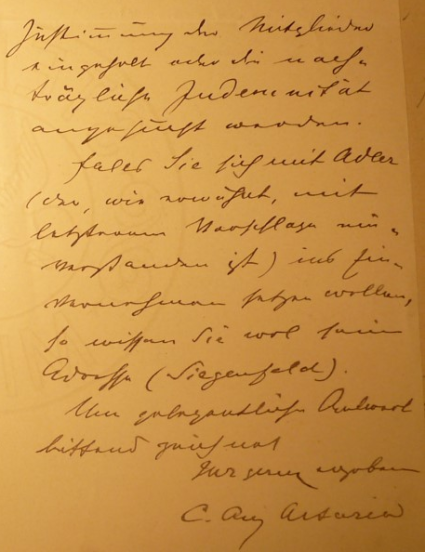 Zustimmung der Mitglieder
eingeholt oder die nach-
trägliche Indemnität
angesucht werden.
Falls Sie sich mit Adler
(der, wie erwähnt, mit
letzterem Vorschlage ein-
verstanden ist) ins Ein-
vernehmen setzen wollen,
so wissen Sie wol seine
Adresse (Siegenfeld).
Um gelegentliche Antwort
bittend zeichnet
Ihr ganz ergebener
C. Aug Artaria